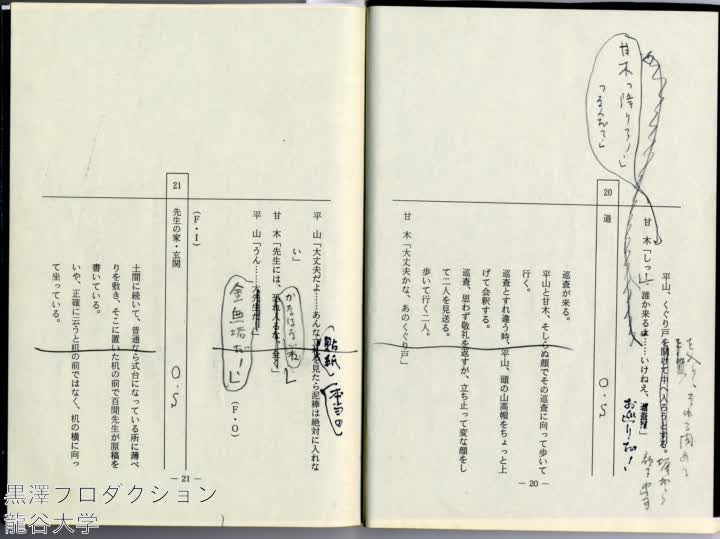 平山、くぐり戸を開けて中へ入ろうとする。
甘 木「しッ！ 誰か来る……いけねえ、
お巡りだ！
甘木っ降りろ！」
20 道
O.S
巡査が来る。
平山と甘木、そしらぬ顔でその巡査に向って歩いて
行く。
巡査とすれ違う時、平山、頭の山高帽をちょっと上
げて会釈する。
巡査、思わず敬礼を返すが、立ち止って変な顔をし
て二人を見送る。
歩いて行く二人。
甘 木「大丈夫かな、あのくぐり戸」
― 20 ―
平 山「大丈夫だよ……あんな
を見たら泥棒は絶対に入れな
い」
(貼紙)
甘 木「先生には、
かなはないね」
平 山「うん……
金無垢だ！」
(F・O)
(F・I)
21 先生の家・玄関
O.S
土間に続いて、普通なら式台になっている所に薄べ
りを敷き、そこに置いた机の前で百閒先生が原稿を
書いている。
いや、正確に云うと机の前ではなく、机の横に向っ
て坐っている。
― 21 ―
黒澤プロダクション
龍谷大学